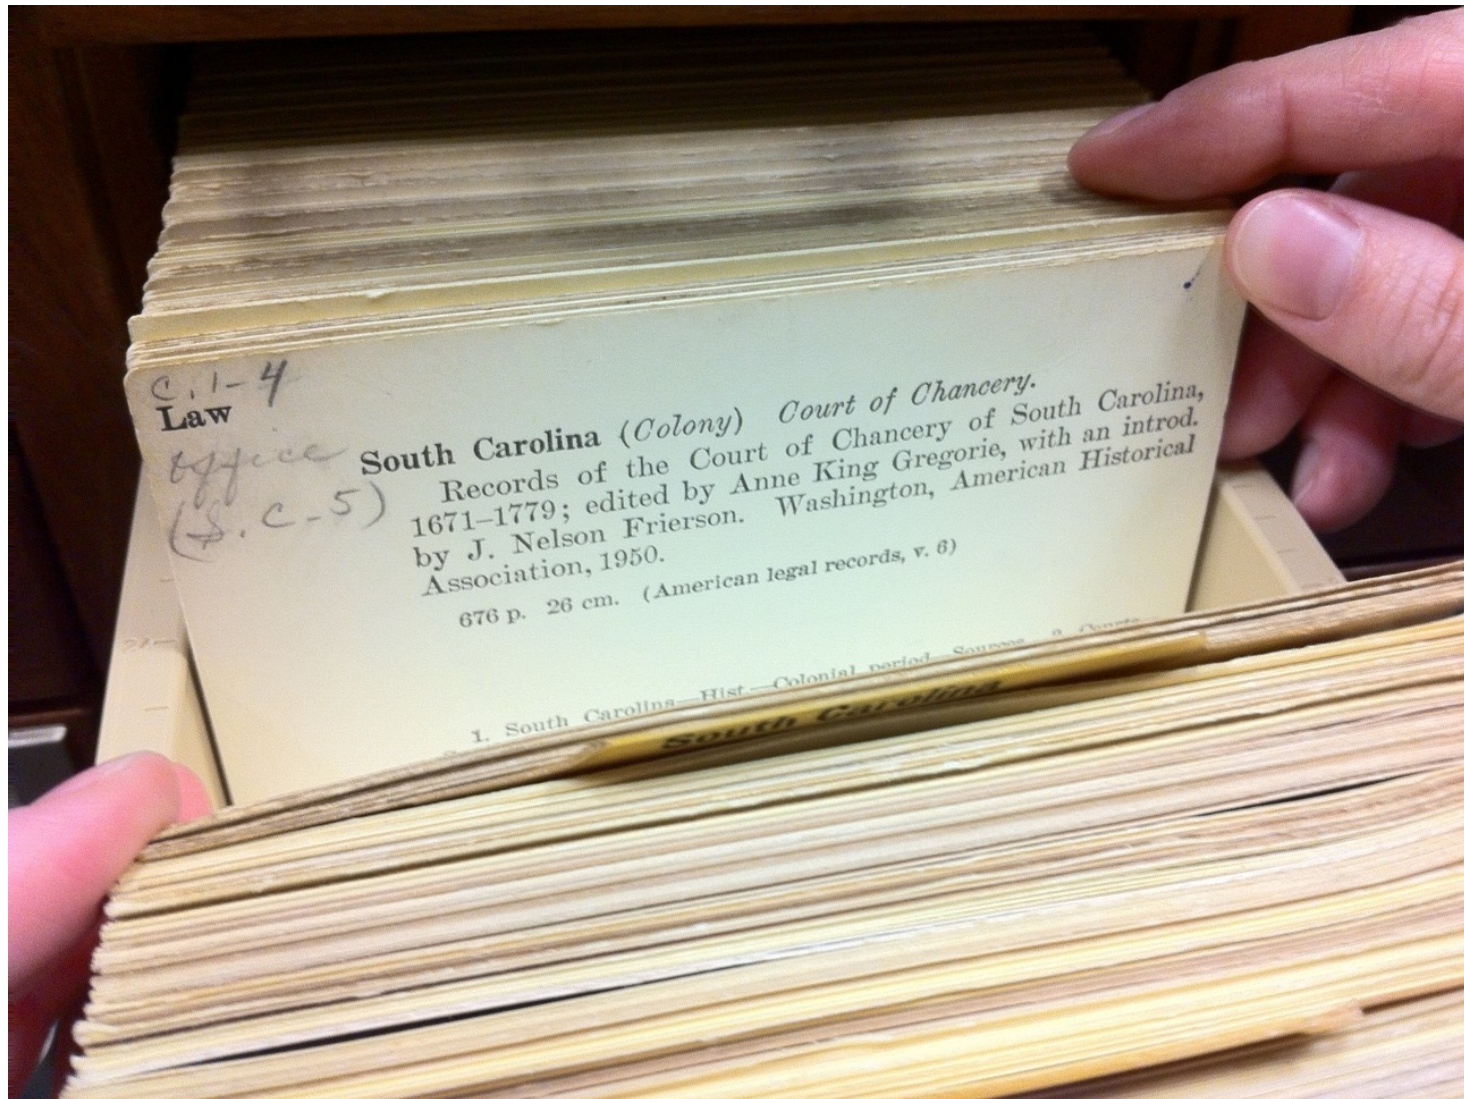 C. 1-4
Law
office
(S. C-5)
South Carolina (Colony) Court of Chancery.
Records of the Court of Chancery of South Carolina,
1671–1779; edited by Anne King Gregorie, with an introd.
by J. Nelson Frierson. Washington, American Historical
Association, 1950.
676 p. 26 cm. (American legal records, v. 6)
1. South Carolina—Hist.—Colonial period—Sources. 2. Courts
South Carolina